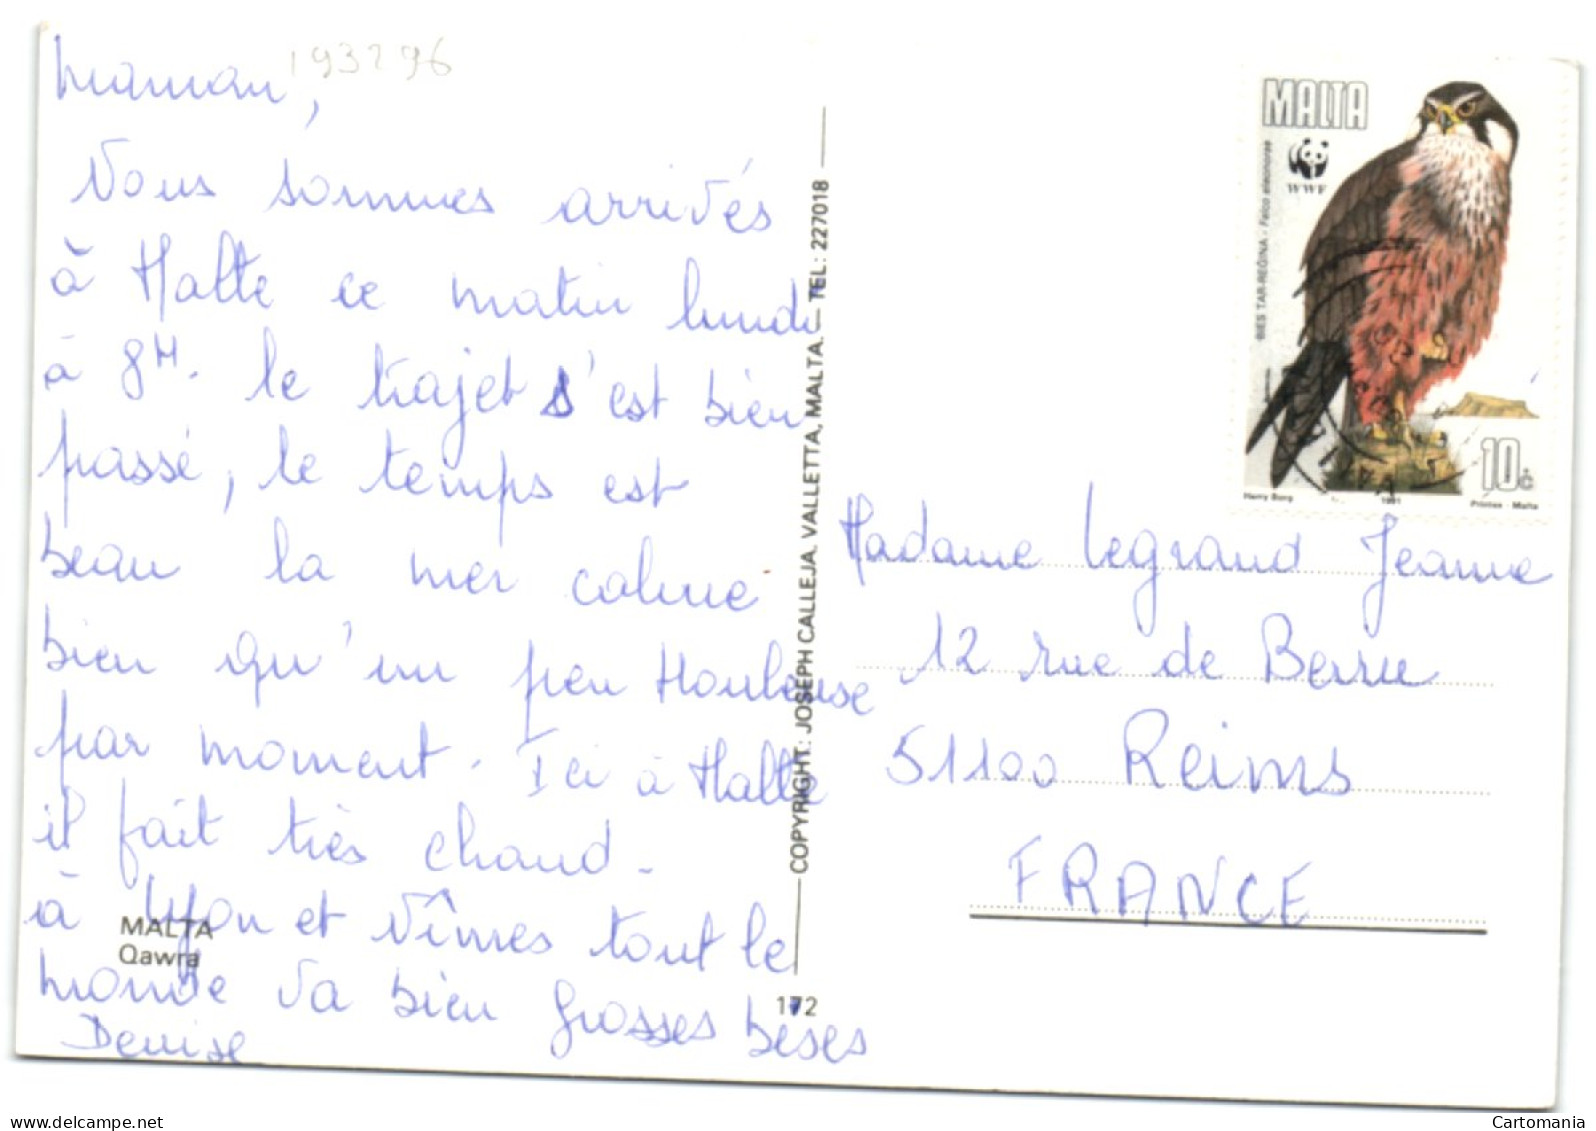 193296
Maman,
Nous sommes arrivés
à Malte ce matin lundi
à 8H. le trajet s'est bien
passé, le temps est
beau la mer calme
bien qu'un peu Houleuse
par moment. Ici à Malte
il fait très chaud.
à Lyon et Nîmes tout le
monde va bien grosses bises
Denise
MALTA
Qawra
172
COPYRIGHT: JOSEPH CALLEJA. VALLETTA, MALTA. — TEL: 227018
MALTA
WWF
BIES TAR-REĠINA - Falco eleonorae
10c
Harry Borg
1991
Printex - Malta
Madame Legrand Jeanne
12 rue de Berru
51100 Reims
FRANCE
Cartomania